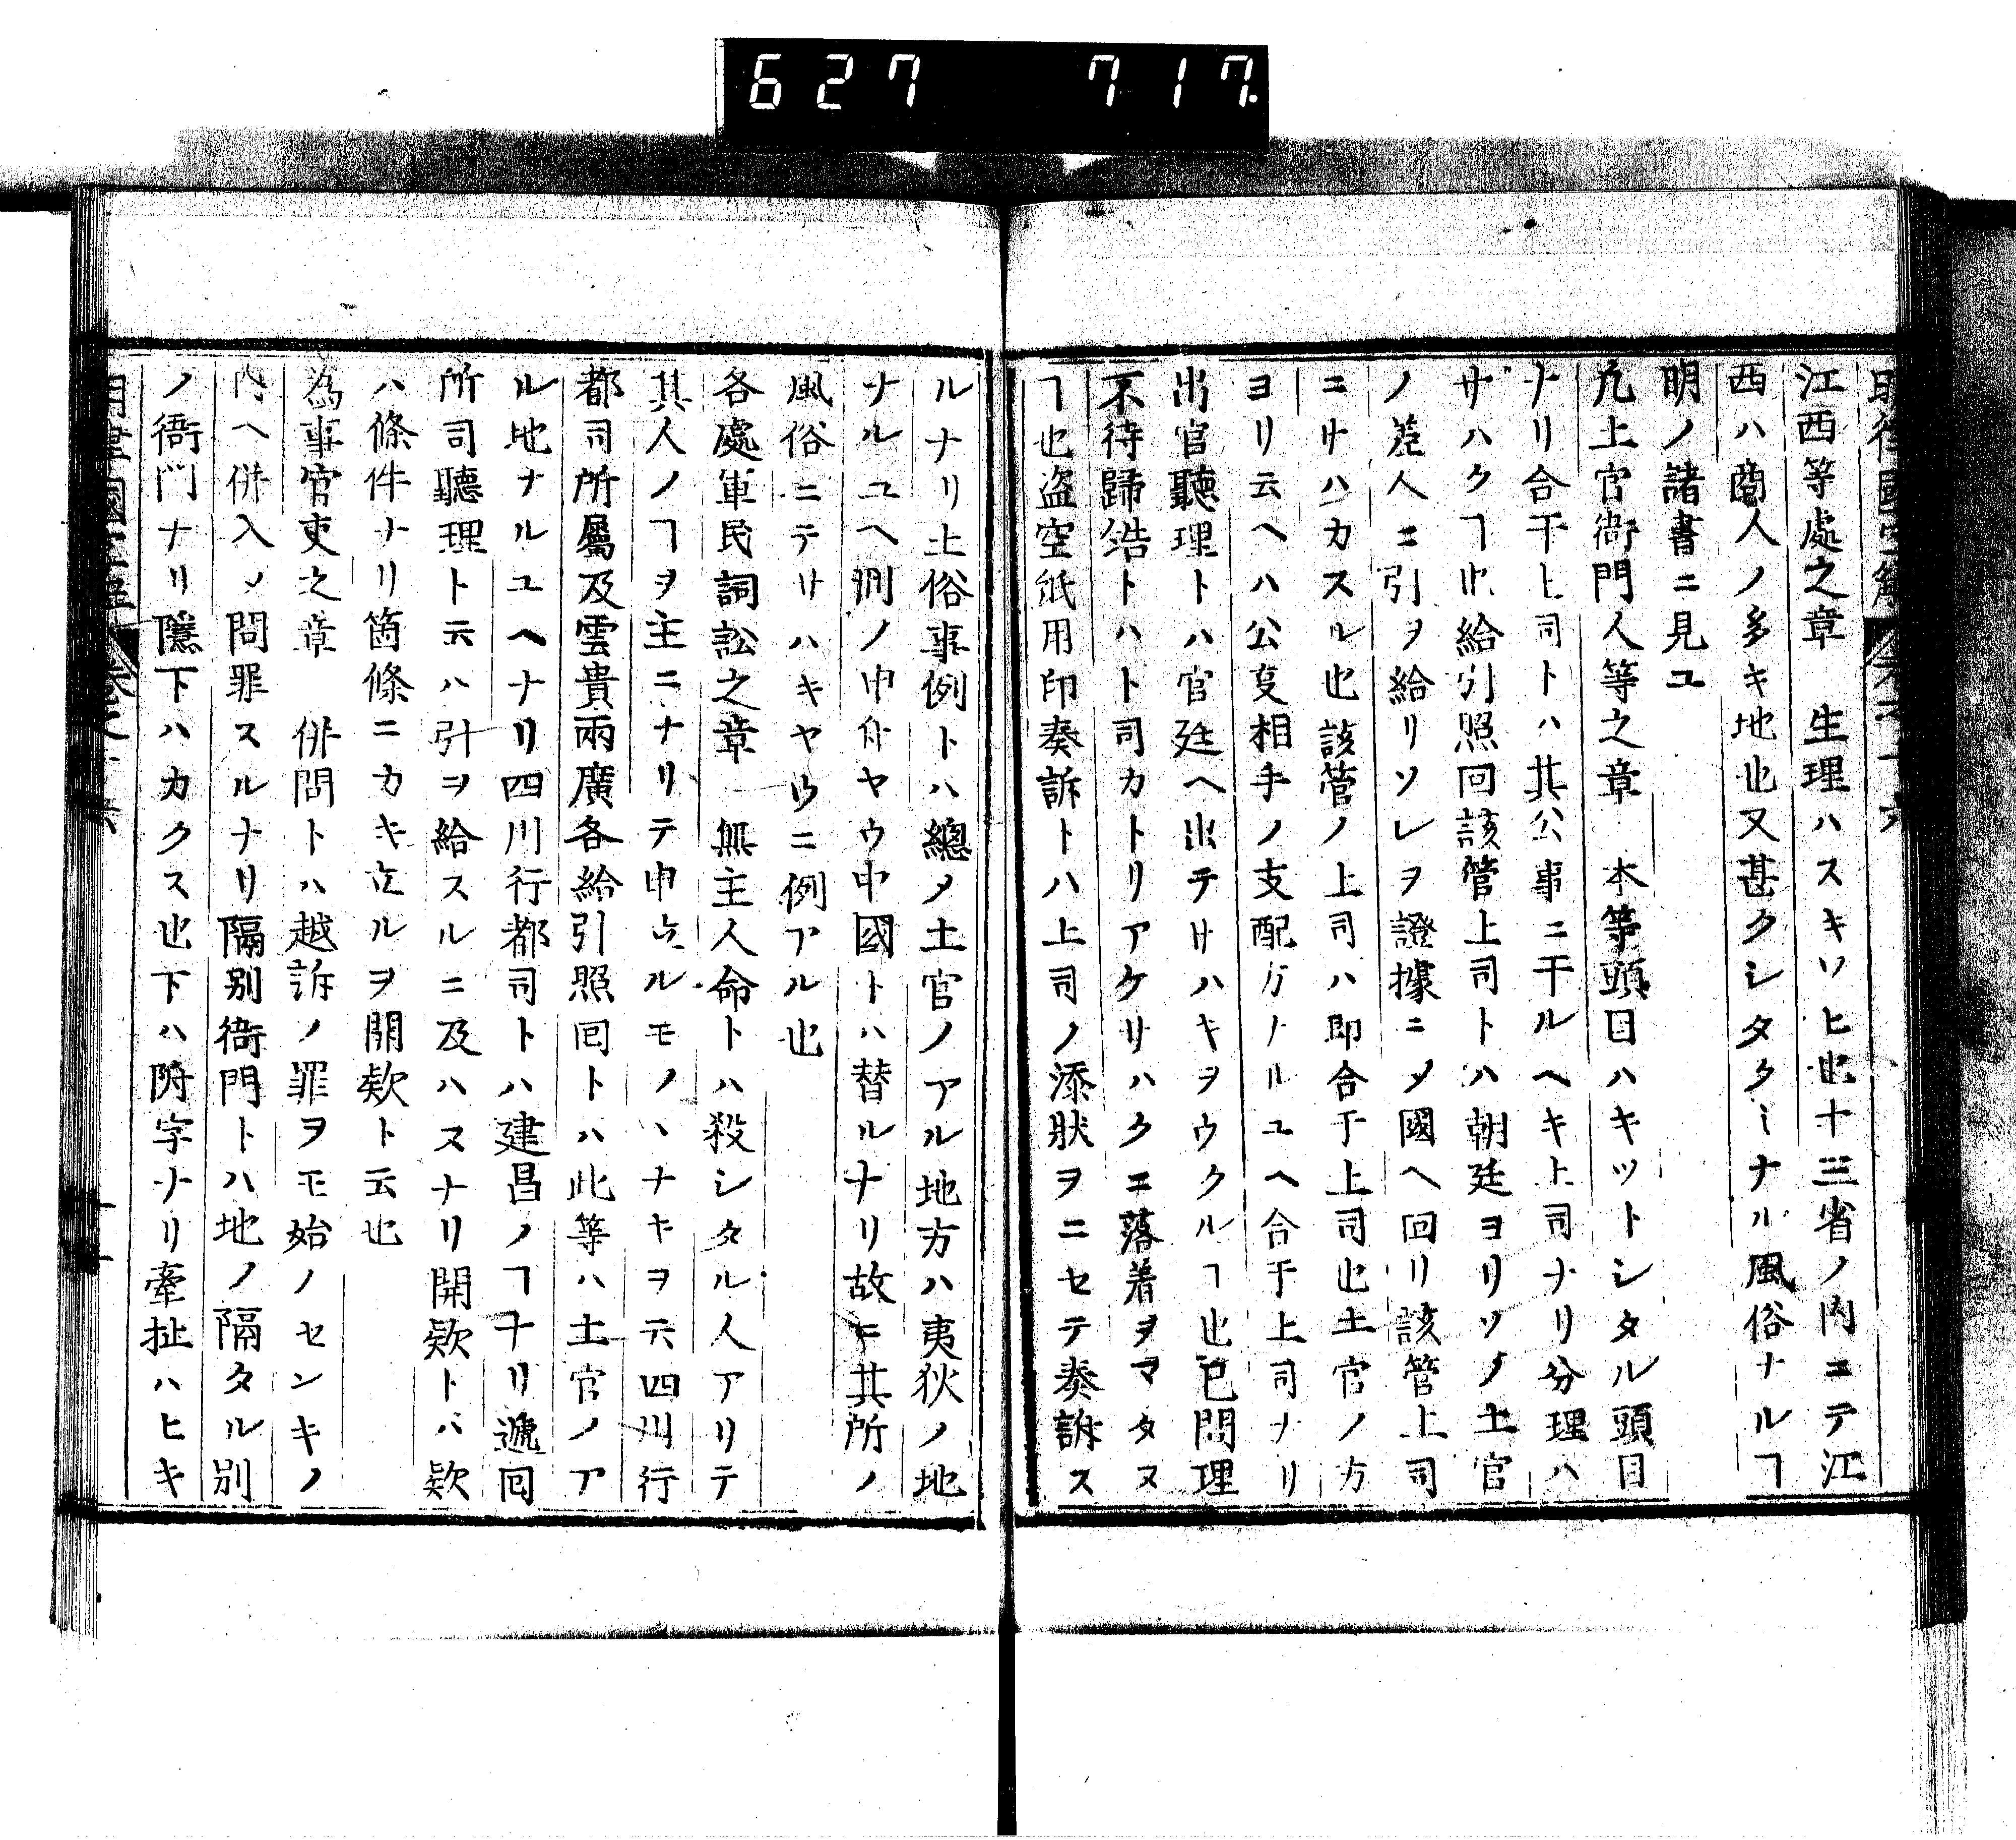 627 717.
明律國字解 卷之十六
江西等處之章　生理ハスキワヒ也十三省ノ内ニテ江
西ハ商人ノ多キ地也又甚クシタタミナル風俗ナルヿ
明ノ諸書ニ見ユ
凡土官衙門人等之章　本等頭目ハキットシタル頭目
ナリ合干上司トハ其公事ニ干ルヘキ上司ナリ分理ハ
サハクヿ也給引照回該管上司トハ朝廷ヨリソノ土官
ノ差人ニ引ヲ給リソレヲ證據ニメ國ヘ回リ該管上司
ニサハカスル也該管ノ上司ハ即合于上司也土官ノ方
ヨリ云ヘハ公事相手ノ支配方ナルユヘ合于上司ナリ
出官聽理トハ官廷ヘ出テサハキヲウクルヿ也已問理
不待歸結トハト司カトリアケサハクニ落着ヲマタヌ
ヿ也盗空紙用印奏訴トハ上司ノ添狀ヲニセテ奏訴ス
ルナリ土俗事例トハ總メ土官ノアル地方ハ夷狄ノ地
ナルユヘ掟ノ申付ヤウ中國トハ替ルナリ故ニ其所ノ
風俗ニテサハキヤウニ例アル也
各處軍民詞訟之章　無主人命トハ殺シタル人アリテ
其人ノヿヲ主ニナリテ申立ルモノハナキヲ云四川行
都司所屬及雲貴兩廣各給引照回トハ此等ハ土官ノア
ル地ナルユヘナリ四川行都司トハ建昌ノヿナリ遞回
所司聽理ト云ハ引ヲ給スルニ及ハスナリ開欵トハ欵
ハ條件ナリ箇條ニカキ立ルヲ開欵ト云也
為事官吏之章　併問トハ越訴ノ罪ヲモ始ノセンキノ
内ヘ併入メ問罪スルナリ隔別衙門トハ地ノ隔タル別
ノ衙門ナリ隱下ハカクス也下ハ附字ナリ牽扯ハヒキ
明律國字解 卷之十六